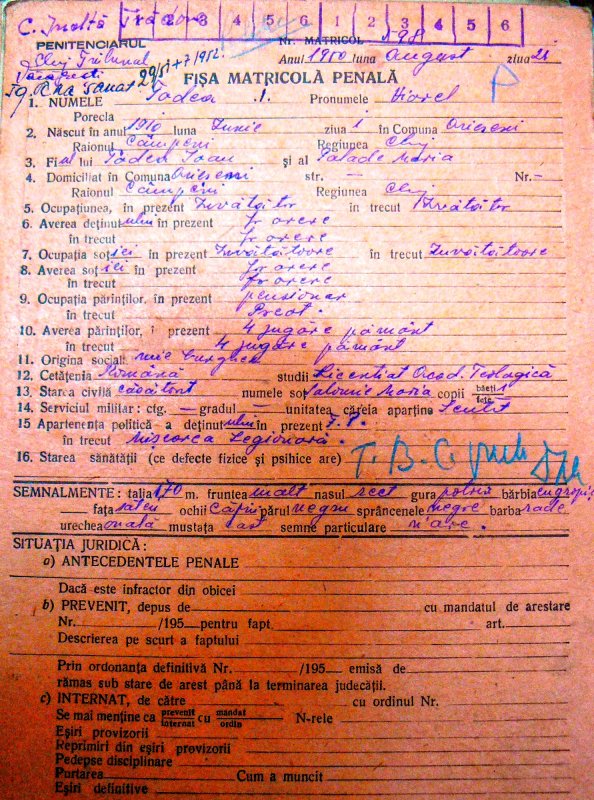 C. Înaltă Trădare
1 2 3 4 5 6 1 2 3 4 5 6
PENITENCIARUL Nr. MATRICOL 598
Cluj Tribunal Anul 1950 luna August ziua 24
Văcărești
Tg. Ocna Sanat 29/VI + 7/1952.
FIȘA MATRICOLĂ PENALĂ P
1. NUMELE Todea I. Pronumele Viorel
Porecla
2. Născut în anul 1910 luna Iunie ziua 1 în Comuna
Raionul Câmpeni Regiupea Cluj
3. Fiul lui Todea Ioan și al Palade Maria
4. Domiciliat în Comuna str. — Nr. —
Raionul Câmpeni Regiunea Cluj
5. Ocupațiunea, în prezent Învățător în trecut Învățător
6. Averea deținutului în prezent nu are
în trecut nu are
7. Ocupația soției în prezent Învățătoare în trecut Învățătoare
8. Averea soției în prezent nu are
în trecut nu are
9. Ocupația părinților, în prezent pensionar
în trecut Preot.
10. Averea părinților, i prezent 4 jugăre pământ
în trecut 4 jugăre pământ
11. Origina socială mic burgheză
12. Cetățenia Română studii Licențiat Acad. Teologică
13. Starea civilă căsătorit numele soț Maria copii băeți 1 fete
14. Serviciul militar: ctg. — gradul unitatea căreia aparține Scutit
15 Apartenența politică a deținutului în prezent F. P.
în trecut Mișcarea Legionară.
16. Starea sănătății (ce defecte fizice și psihice are) T. B. C.
SEMNALMENTE: talia 1,70 m. fruntea înalt nasul rect gura potriv bărbia
fața ochii căprui părul negru sprâncenele negre barba rade
urechea ovală mustața semne particulare n'are.
SITUAȚIA JURIDICĂ:
a) ANTECEDENTELE PENALE
Dacă este infractor din obicei
b) PREVENIT, depus de cu mandatul de arestare
Nr. /195 pentru fapt art.
Descrierea pe scurt a faptului
Prin ordonanța definitivă Nr. /195 emisă de
rămas sub stare de arest până la terminarea judecății.
c) INTERNAT, de către cu ordinul Nr.
Se mai menține ca prevenit internat cu mandat ordin N-rele
Eșiri provizorii
Reprimiri din eșiri provizorii
Pedepse disciplinare
Purtarea Cum a muncit
Eșiri definitive